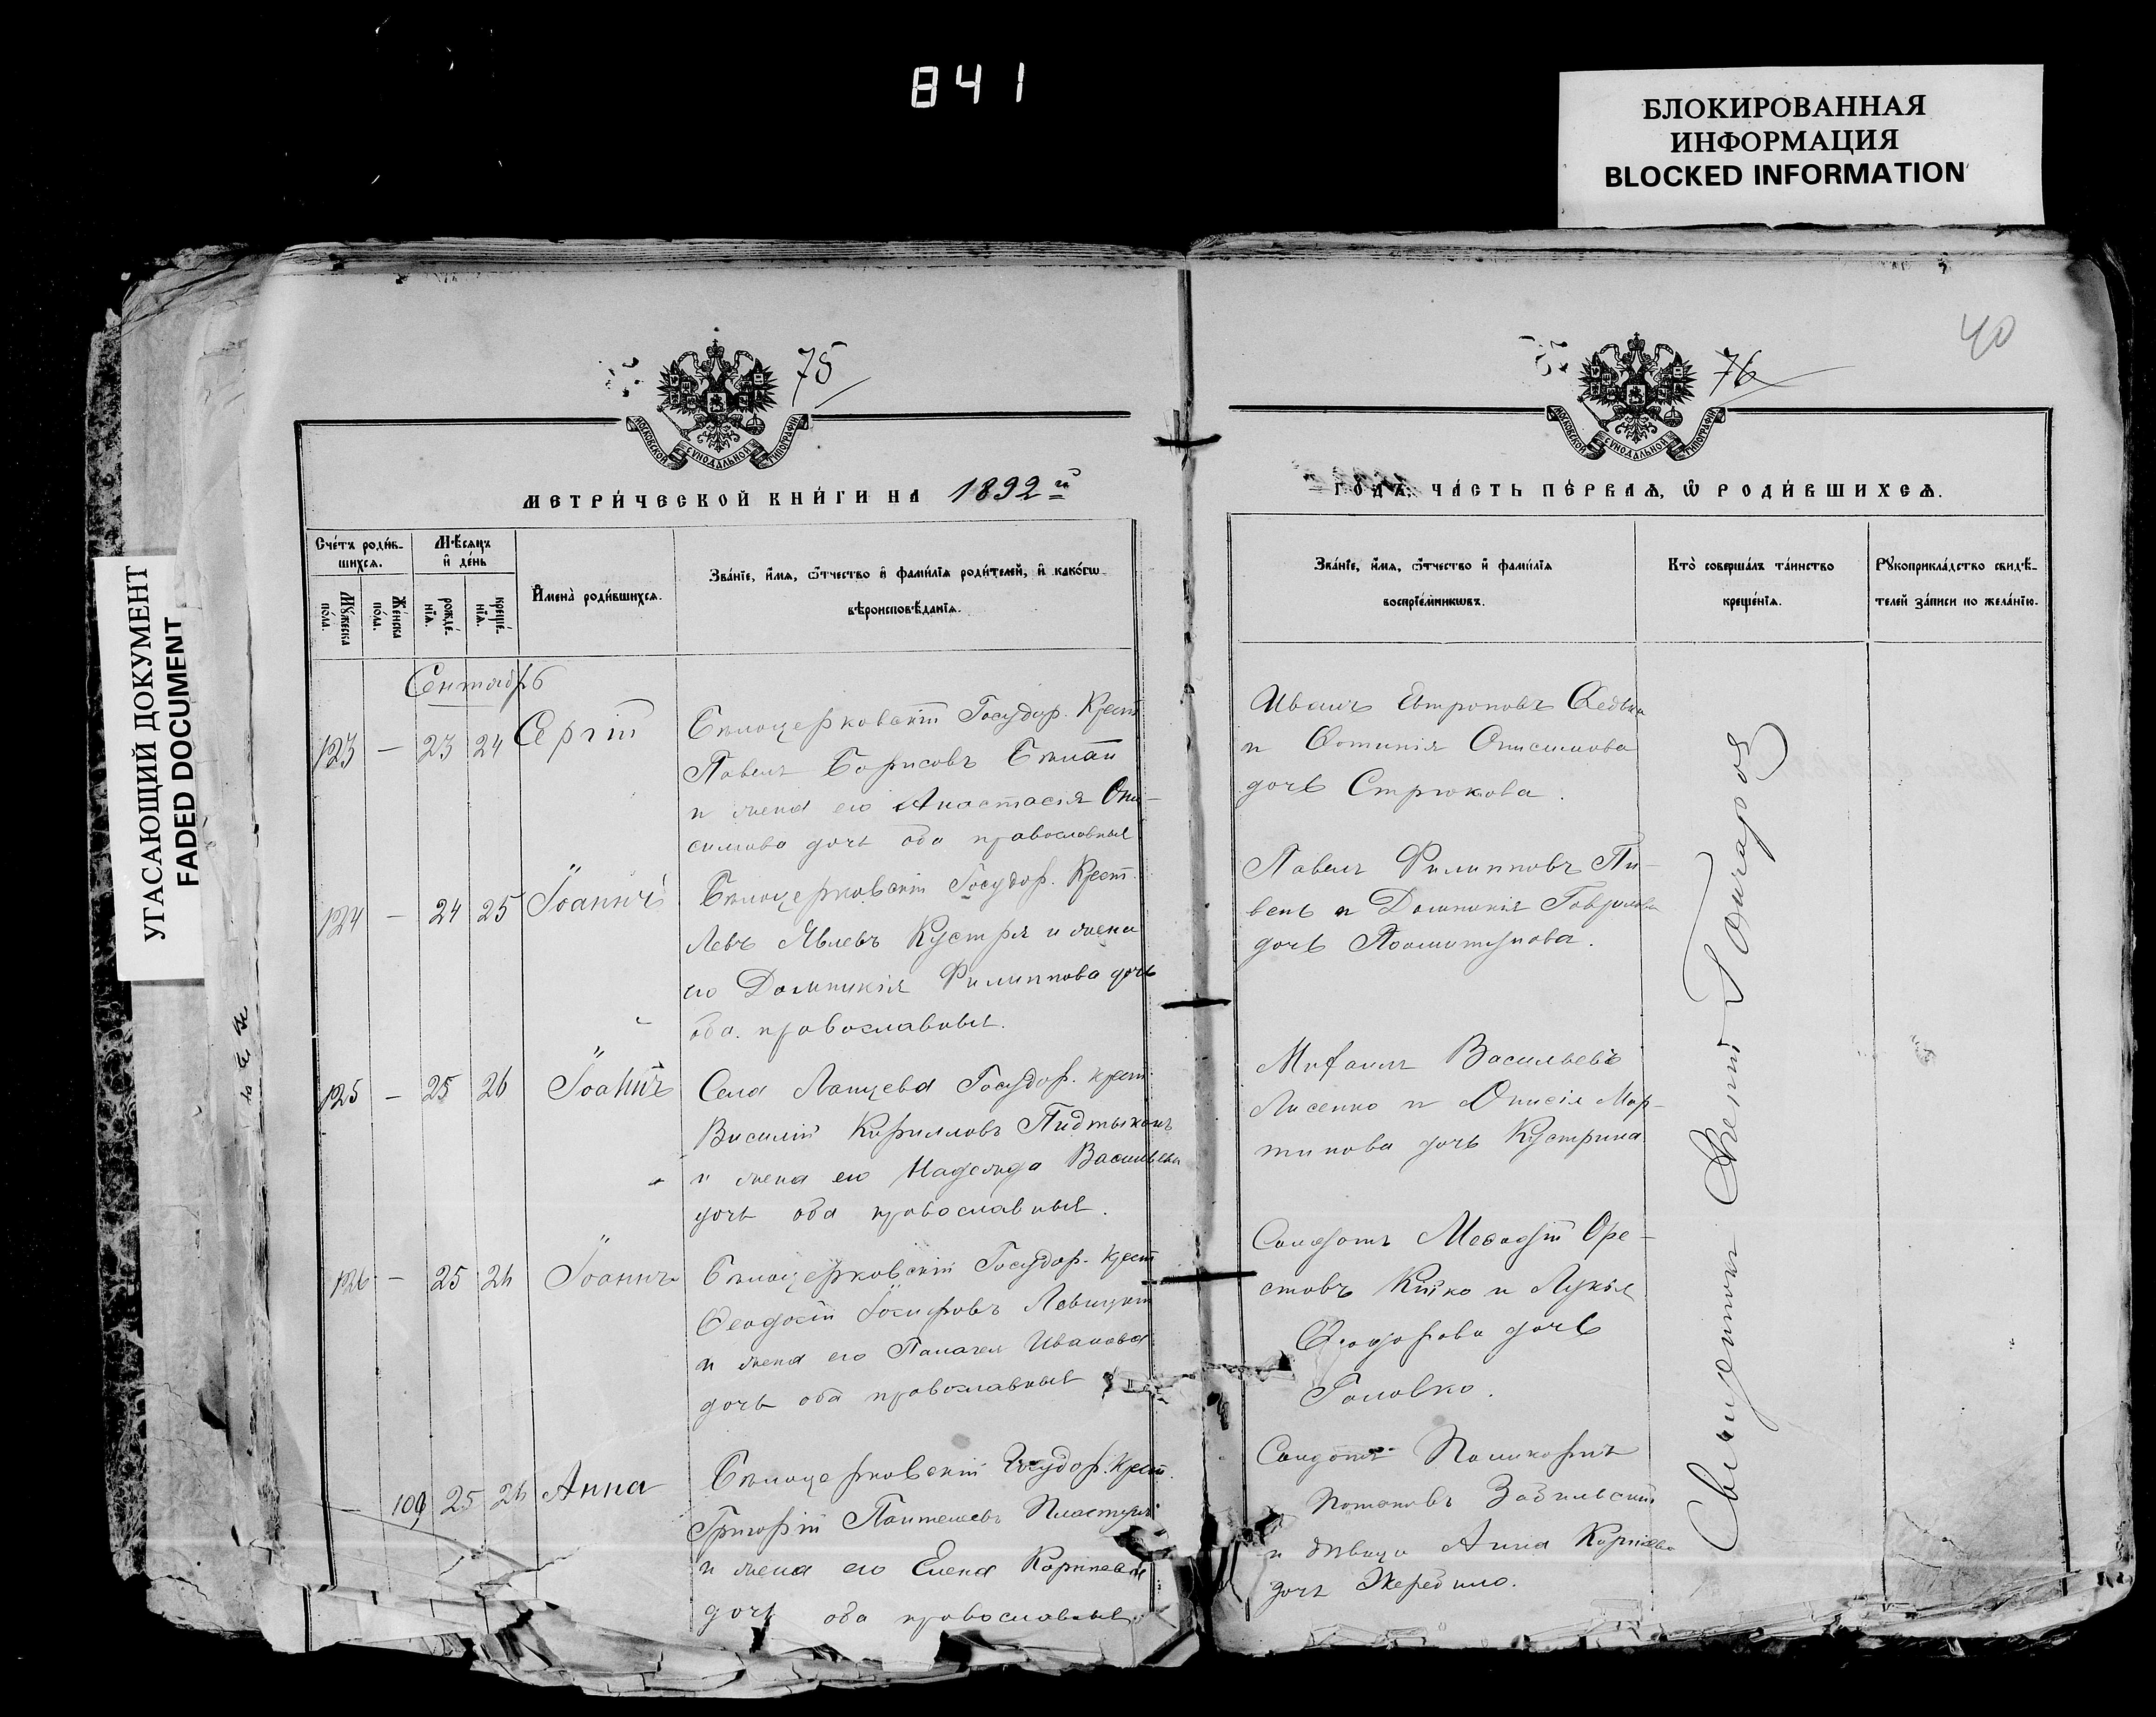 841
БЛОКИРОВАННАЯ
ИНФОРМАЦИЯ
BLOCKED INFORMATION
УГАСАЮЩИЙ ДОКУМЕНТ
FADED DOCUMENT
75
МОСКОВСКОЙ СѴНОДАЛЬНОЙ ТИПОГРАФІИ
МЕТРИ́ЧЕСКОЙ КНИ́ГИ НА 1892й
Сче́тъ роди́в-
шихсѧ.
Мѣ́сѧцъ
и҆ де́нь
Мꙋ́жеска
по́ла.
Же́нска
по́ла.
рожде́-
нїѧ.
креще́-
нїѧ.
И҆мена̀ роди́вшихсѧ.
Зва́нїе, и҆́мѧ, ѻ҆́тчество и҆ фами́лїѧ роди́телей, и҆ како́гѡ
вѣроисповѣ́данїѧ.
Сентябрь
123 — 23 24 Сергій
Бѣлоцерковскій Государ. Крест
Павелъ Борисовъ Бѣлай
и жена его Анастасія Они-
симова дочь оба православные
124 — 24 25 Іоаннъ
Бѣлоцерковскій Государ. Крест.
Левъ Явлевъ Кустря и жена
его Домникія Филиппова дочь
оба православные.
125 — 25 26 Іоаннъ
Села Лапцева Государ. крест
Василій Кирилловъ Пидтыканъ
и жена его Надежда Васильева
дочь оба православные.
126 — 25 26 Іоаннъ
Бѣлоцерковскій Государ. крест
Ѳеодосій Іосифовъ Левицкій
и жена его Палагея Иванова
дочь оба православные
— 109 25 26 Анна
Бѣлоцерковскій Государ. Крест.
Григорій Пантелеевъ Пластунъ
и жена его Елена Корніева
дочь оба православные
40
76
МОСКОВСКОЙ СѴНОДАЛЬНОЙ ТИПОГРАФІИ
ГО́ДЪ, ЧА́СТЬ ПЕ́РВАѦ, Ѡ҆ РОДИ́ВШИХСѦ.
Зва́нїе, и҆́мѧ, ѻ҆́тчество и҆ фами́лїѧ
воспрїе́мникѡвъ.
Кто̀ соверша́лъ та́инство
креще́нїѧ.
Рꙋкоприкла́дство свидѣ́-
телей за́писи по жела́нїю.
Иванъ Евтроповъ
и Фотинія Онисимова
дочь Стрюкова.
Павелъ Филипповъ Пи-
вень и Домникія Гаврилова
дочь
Михаилъ Васильевъ
Лисенко и Онисія Мар-
тинова дочь Кустрина
Солдатъ Меѳодій Оре-
стовъ Кийко и Лукія
Ѳеодорова дочь
Головко.
Солдатъ Поликарпъ
Потаповъ
и дѣвица Анна Корніева
дочь Жеребило.
Священникъ Гончаровъ